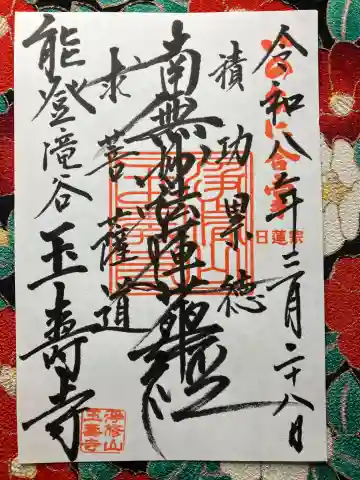 令和八年三月二十八日
積功累徳
南無妙法蓮華経
求菩薩道
能登滝谷
玉壽寺
日蓮宗